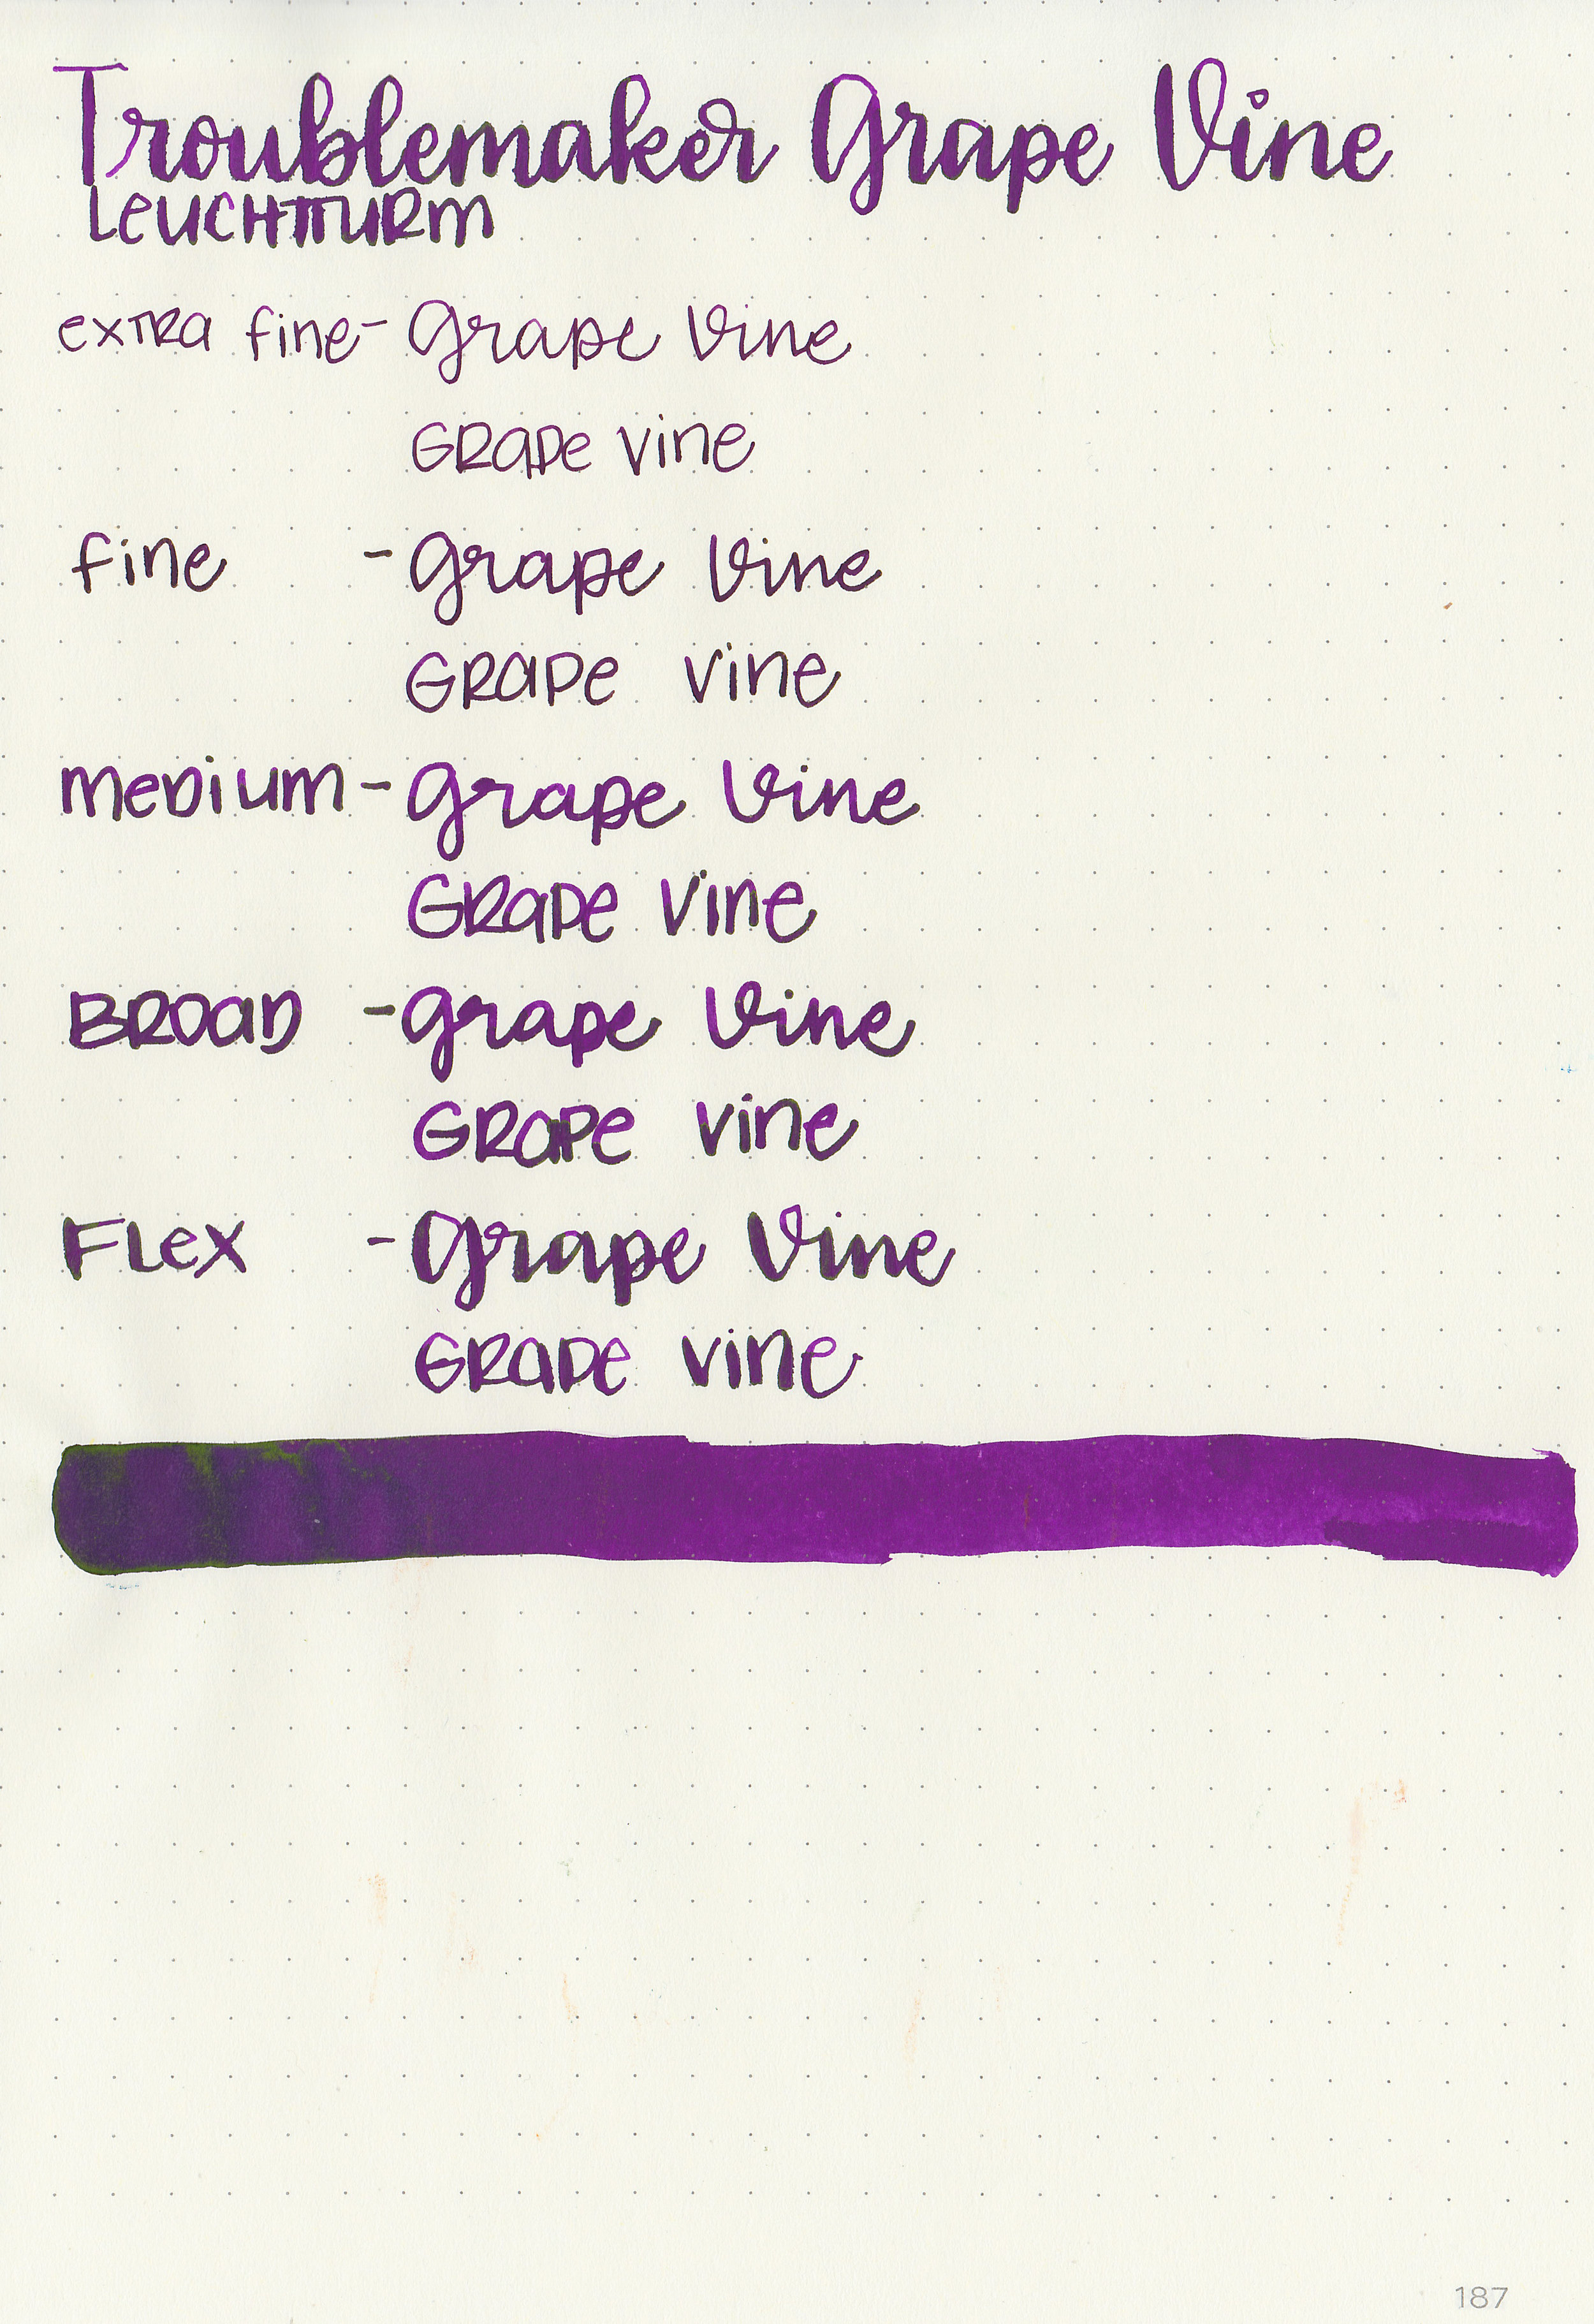 Troublemaker Grape Vine
LEUCHTTURM
EXTRA fine - Grape Vine
GRAPE Vine
fine - Grape Vine
GRAPE Vine
MEDIUM - Grape Vine
GRAPE Vine
BROAD - Grape Vine
GRAPE Vine
FLEX - Grape Vine
GRAPE Vine
187